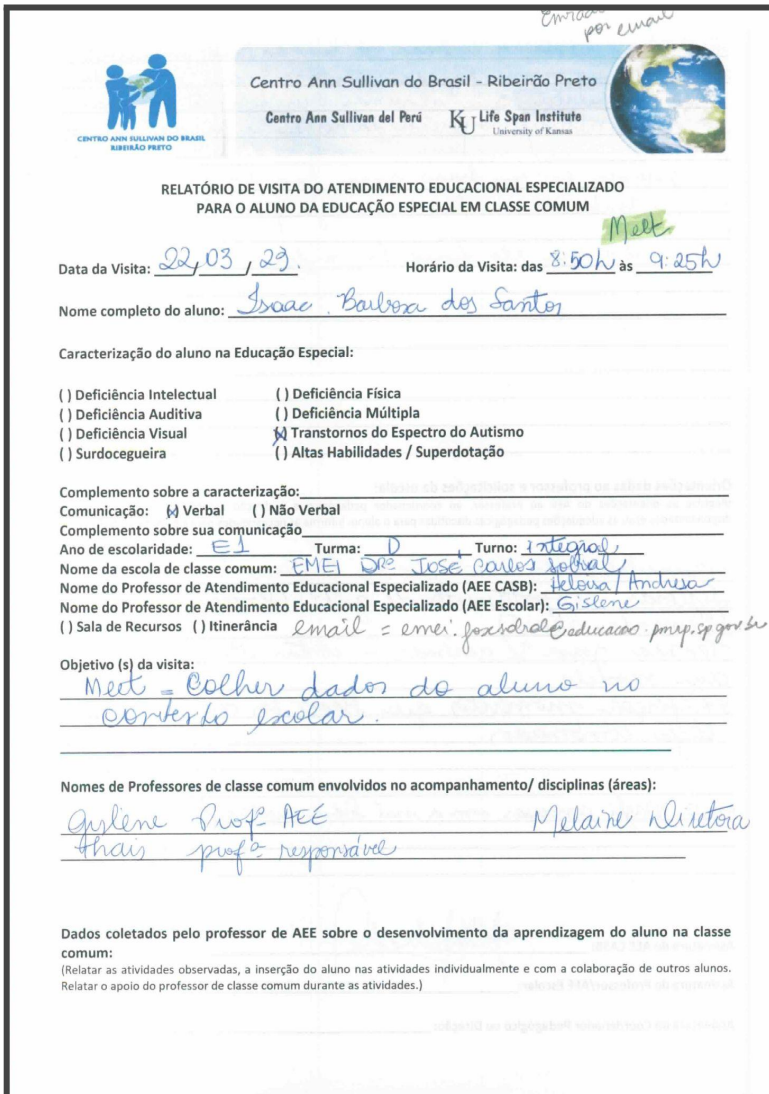 Enviado
por email
Centro Ann Sullivan do Brasil - Ribeirão Preto
Centro Ann Sullivan del Perú KU Life Span Institute
University of Kansas
CENTRO ANN SULLIVAN DO BRASIL
RIBEIRÃO PRETO
RELATÓRIO DE VISITA DO ATENDIMENTO EDUCACIONAL ESPECIALIZADO
PARA O ALUNO DA EDUCAÇÃO ESPECIAL EM CLASSE COMUM
Meet
Data da Visita: 22/03/23. Horário da Visita: das 8:50h às 9:25h
Nome completo do aluno: Isaac Barbosa dos Santos
Caracterização do aluno na Educação Especial:
( ) Deficiência Intelectual ( ) Deficiência Física
( ) Deficiência Auditiva ( ) Deficiência Múltipla
( ) Deficiência Visual (x) Transtornos do Espectro do Autismo
( ) Surdocegueira ( ) Altas Habilidades / Superdotação
Complemento sobre a caracterização:
Comunicação: (x) Verbal ( ) Não Verbal
Complemento sobre sua comunicação
Ano de escolaridade: E1 Turma: D Turno: Integral
Nome da escola de classe comum: EMEI DRº José Carlos Sobral
Nome do Professor de Atendimento Educacional Especializado (AEE CASB): Heloisa/Andresa
Nome do Professor de Atendimento Educacional Especializado (AEE Escolar): Gislene
( ) Sala de Recursos ( ) Itinerância email = emei.
Objetivo (s) da visita:
Meet = Colher dados do aluno no
contexto escolar.
Nomes de Professores de classe comum envolvidos no acompanhamento/ disciplinas (áreas):
Gislene Profª AEE Melaine Diretora
thais profª responsável
Dados coletados pelo professor de AEE sobre o desenvolvimento da aprendizagem do aluno na classe
comum:
(Relatar as atividades observadas, a inserção do aluno nas atividades individualmente e com a colaboração de outros alunos.
Relatar o apoio do professor de classe comum durante as atividades.)